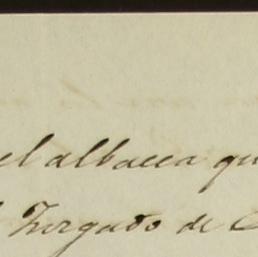 el albacea qu
Jurgado de C